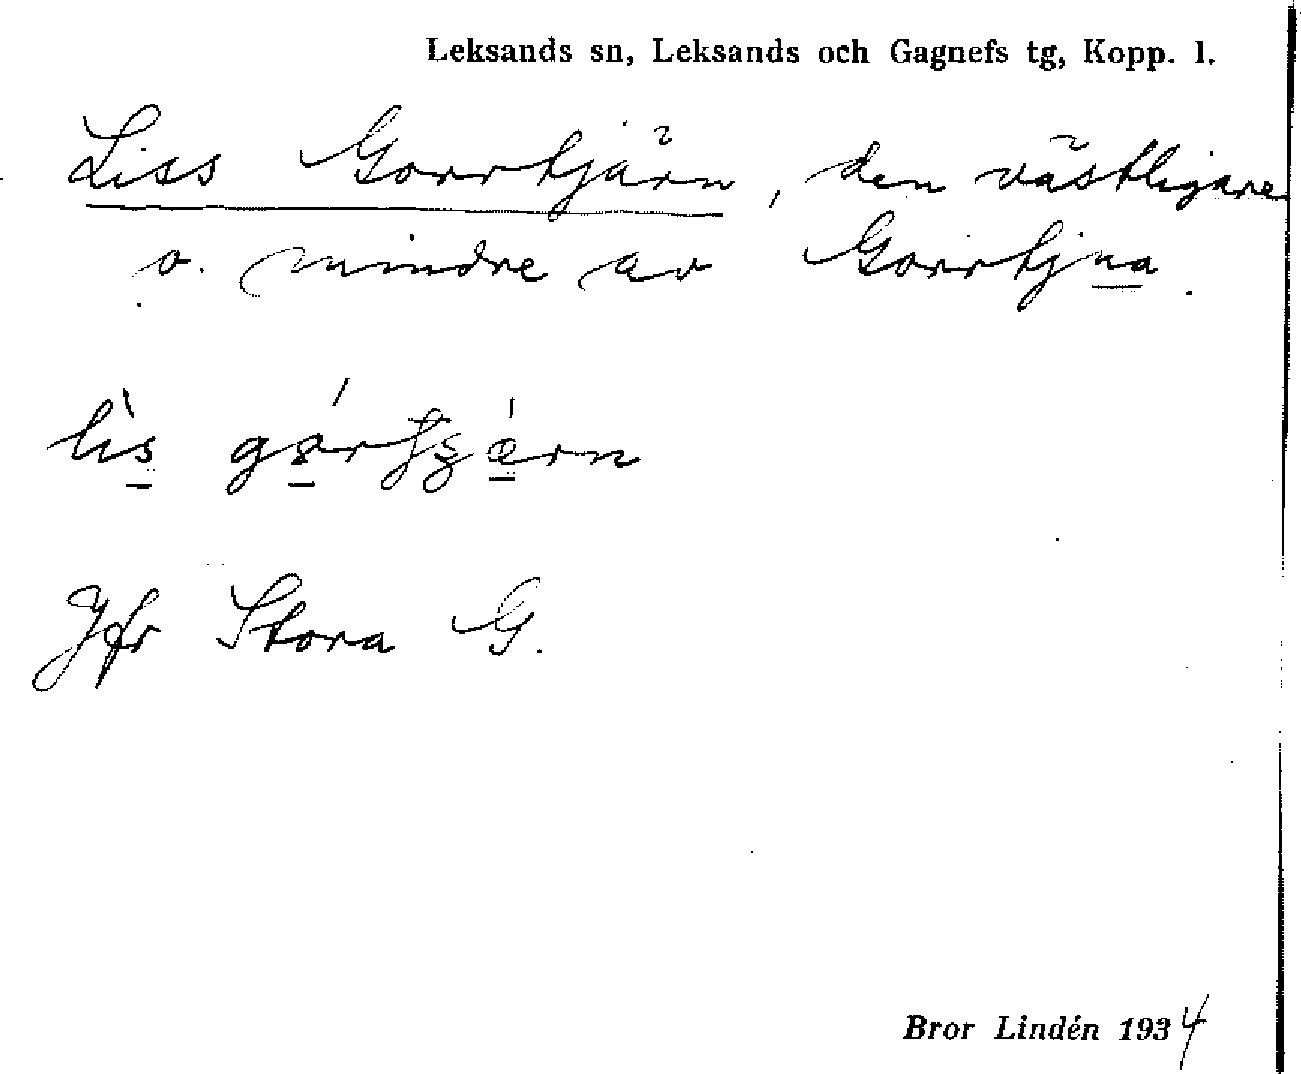 Leksands sn, Leksands och Gagnefs tg, Kopp. l.
Liss Gorrtjärn, den västligare
o. mindre av Gorrtjna.
lìs
Jfr Stora G.
Bror Lindén 1934